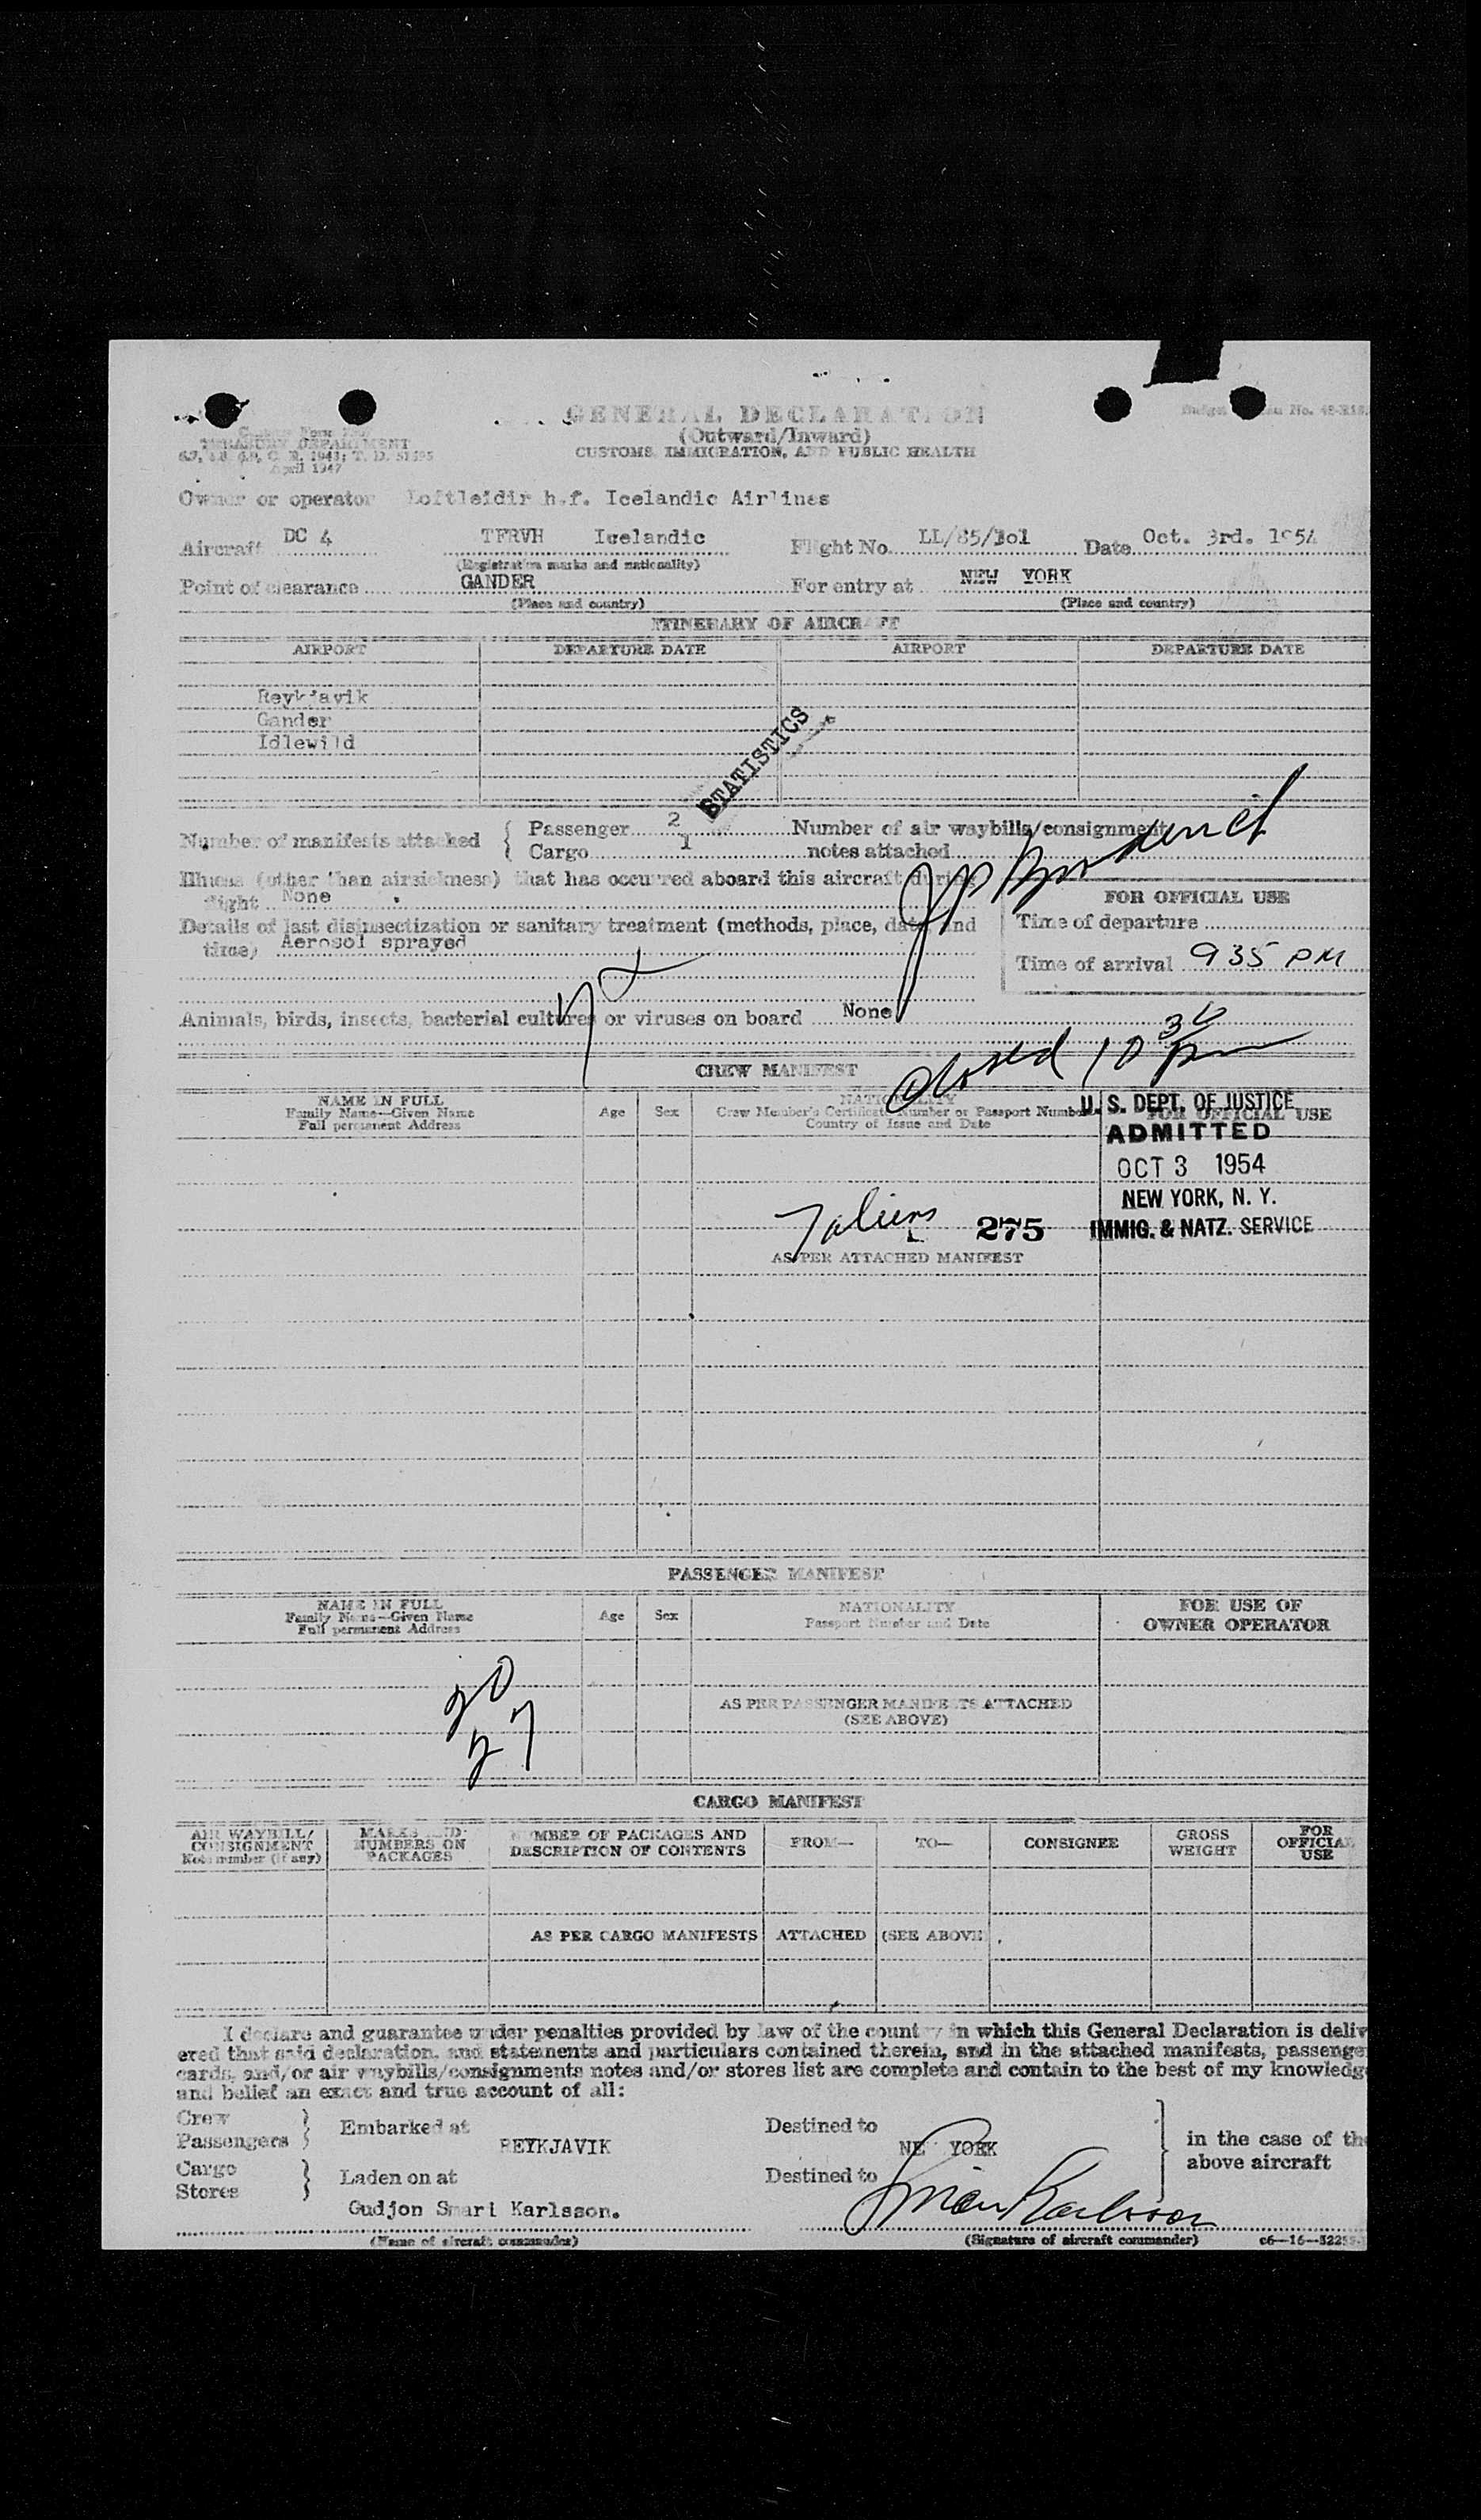 GENERAL DECLARATION
(Outward/Inward)
CUSTOMS, IMMIGRATION, AND PUBLIC HEALTH
TREASURY DEPARTMENT
April 1947
Owner or operator Loftleidir h.f. Icelandic Airlines
Aircraft DC 4 TFRVH Icelandic Flight No. Date Oct. 3rd. 1954
(Registration marks and nationality)
Point of clearance GANDER For entry at NEW YORK
(Place and country) (Place and country)
ITINERARY OF AIRCRAFT
AIRPORT DEPARTURE DATE AIRPORT DEPARTURE DATE
Reykjavik
Gander
Idlewild
STATISTICS
Number of manifests attached { Passenger 2 Number of air waybills/consignment
Cargo 1 notes attached
Illness (other than airsickness) that has occurred aboard this aircraft during
flight None
FOR OFFICIAL USE
Details of last disinsectization or sanitary treatment (methods, place, date and
time) Aerosol sprayed
Time of departure
Time of arrival 935 PM
Animals, birds, insects, bacterial cultures or viruses on board None
Closed 10 30 pm
CREW MANIFEST
NAME IN FULL
Family Name—Given Name
Full permanent Address
Age Sex
NATIONALITY
Crew Member's Certificate Number or Passport Number
Country of Issue and Date
FOR OFFICIAL USE
U. S. DEPT. OF JUSTICE
ADMITTED
OCT 3 1954
NEW YORK, N. Y.
IMMIG. & NATZ. SERVICE
7 aliens 275
AS PER ATTACHED MANIFEST
PASSENGER MANIFEST
NAME IN FULL
Family Name—Given Name
Full permanent Address
Age Sex
NATIONALITY
Passport Number and Date
FOR USE OF
OWNER OPERATOR
20
27
AS PER PASSENGER MANIFESTS ATTACHED
(SEE ABOVE)
CARGO MANIFEST
AIR WAYBILL/
CONSIGNMENT
Note number (if any)
MARKS AND
NUMBERS ON
PACKAGES
NUMBER OF PACKAGES AND
DESCRIPTION OF CONTENTS
FROM— TO— CONSIGNEE
GROSS
WEIGHT
FOR
OFFICIAL
USE
AS PER CARGO MANIFESTS ATTACHED (SEE ABOVE)
I declare and guarantee under penalties provided by law of the country in which this General Declaration is deliv
ered that said declaration, and statements and particulars contained therein, and in the attached manifests, passenger
cards, and/or air waybills/consignments notes and/or stores list are complete and contain to the best of my knowledge
and belief an exact and true account of all:
Crew
Passengers } Embarked at REYKJAVIK Destined to NEW YORK
in the case of the
above aircraft
Cargo
Stores } Laden on at Destined to
Gudjon Smari Karlsson.
(Name of aircraft commander) (Signature of aircraft commander)